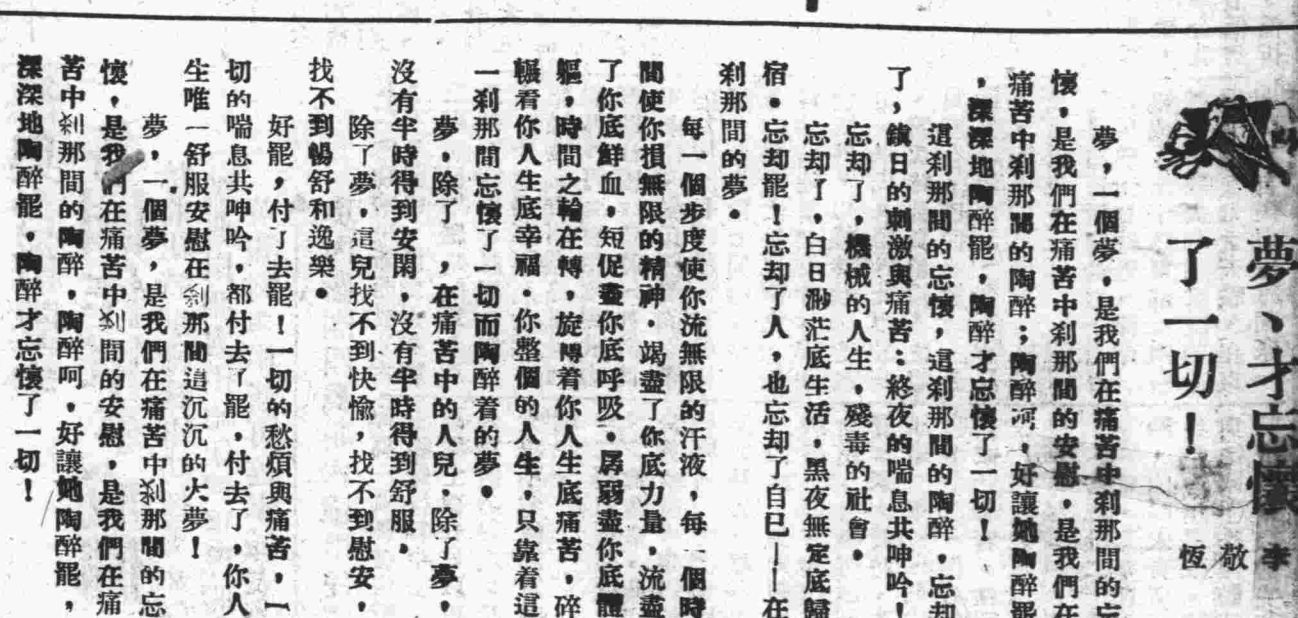 夢、才忘懷
了一切！
李敬恆
夢，一個夢，是我們在痛苦中刹那間的忘
懷，是我們在痛苦中刹那間的安慰，是我們在
痛苦中刹那間的陶醉；陶醉呵，好讓她陶醉罷
，深深地陶醉罷，陶醉才忘懷了一切！
這刹那間的忘懷，這刹那間的陶醉，忘却
了，鎮日的刺激與痛苦：終夜的喘息共呻吟！
忘却了，機械的人生，殘毒的社會。
忘却了，白日渺茫底生活，黑夜無定底歸
宿。忘却罷！忘却了人，也忘却了自已——在
刹那間的夢。
每一個步度使你流無限的汗液，每一個時
間使你損無限的精神．竭盡了你底力量，流盡
了你底鮮血，短促盡你底呼吸。孱弱盡你底體
軀，時間之輪在轉，旋轉着你人生底痛苦，碎
輾看你人生底幸福．你整個的人生，只靠着這
一刹那間忘懷了一切而陶醉着的夢。
夢，除了　，在痛苦中的人兒．除了夢，
沒有半時得到安閑，沒有半時得到舒服，
除了夢，這兒找不到快愉，找不到慰安，
找不到暢舒和逸樂。
好罷，付了去罷！一切的愁煩與痛苦，一
切的喘息共呻吟，都付去了罷，付去了，你人
生唯一舒服安慰在刹那間這沉沉的大夢！
夢，一個夢，是我們在痛苦中刹那間的忘
懷，是我們在痛苦中刹間的安慰，是我們在痛
苦中刹那間的陶醉，陶醉呵，好讓她陶醉罷，
深深地陶醉罷，陶醉才忘懷了一切！